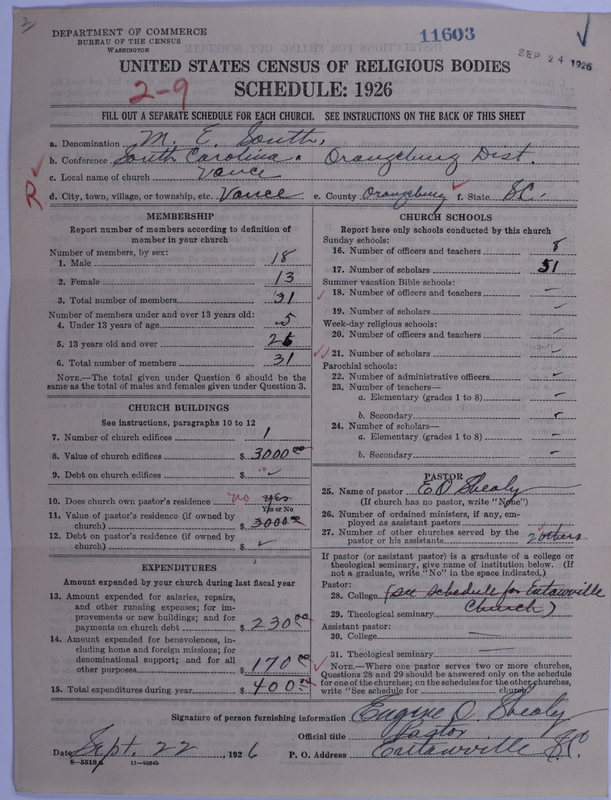 2
DEPARTMENT OF COMMERCE
BUREAU OF THE CENSUS
WASHINGTON
11603
SEP 24 1926
UNITED STATES CENSUS OF RELIGIOUS BODIES
2-9
SCHEDULE: 1926
FILL OUT A SEPARATE SCHEDULE FOR EACH CHURCH. SEE INSTRUCTIONS ON THE BACK OF THIS SHEET
a. Denomination M. E. South,
b. Conference South Carolina. Orangeburg Dist.
c. Local name of church Vance
R
d. City, town, village, or township, etc. Vance e. County Orangeburg f. State S.C.
MEMBERSHIP
Report number of members according to definition of
member in your church
Number of members, by sex:
1. Male 18
2. Female 13
3. Total number of members 31
Number of members under and over 13 years old:
4. Under 13 years of age 5
5. 13 years old and over 26
6. Total number of members 31
NOTE.—The total given under Question 6 should be the
same as the total of males and females given under Question 3.
CHURCH BUILDINGS
See instructions, paragraphs 10 to 12
7. Number of church edifices 1
8. Value of church edifices $ 3000 00
9. Debt on church edifices $
10. Does church own pastor's residence no yes
Yes or No
11. Value of pastor's residence (if owned by
church) $ 3000 00
12. Debt on pastor's residence (if owned by
church) $
EXPENDITURES
Amount expended by your church during last fiscal year
13. Amount expended for salaries, repairs,
and other running expenses; for im-
provements or new buildings; and for
payments on church debt $ 230 00
14. Amount expended for benevolences, in-
cluding home and foreign missions; for
denominational support; and for all
other purposes $ 170 00
15. Total expenditures during year $ 400 00
CHURCH SCHOOLS
Report here only schools conducted by this church
Sunday schools:
16. Number of officers and teachers 8
17. Number of scholars 51
Summer vacation Bible schools:
18. Number of officers and teachers —
19. Number of scholars —
Week-day religious schools:
20. Number of officers and teachers —
21. Number of scholars —
Parochial schools:
22. Number of administrative officers —
23. Number of teachers—
a. Elementary (grades 1 to 8) —
b. Secondary —
24. Number of scholars—
a. Elementary (grades 1 to 8) —
b. Secondary —
PASTOR
25. Name of pastor E O Shealy
(If church has no pastor, write "None")
26. Number of ordained ministers, if any, em-
ployed as assistant pastors
27. Number of other churches served by the
pastor or his assistants 2 others
If pastor (or assistant pastor) is a graduate of a college or
theological seminary, give name of institution below. (If
not a graduate, write "No" in the space indicated.)
Pastor:
28. College (see schedule for Eutawville
29. Theological seminary Church)
Assistant pastor:
30. College —
31. Theological seminary —
NOTE.—Where one pastor serves two or more churches,
Questions 28 and 29 should be answered only on the schedule
for one of the churches; on the schedules for the other churches,
write "See schedule for church"
Signature of person furnishing information Eugene O Shealy
Official title Pastor
Date Sept. 22, 1926 P. O. Address Eutawville S.C.
8-5518a 11-9064b